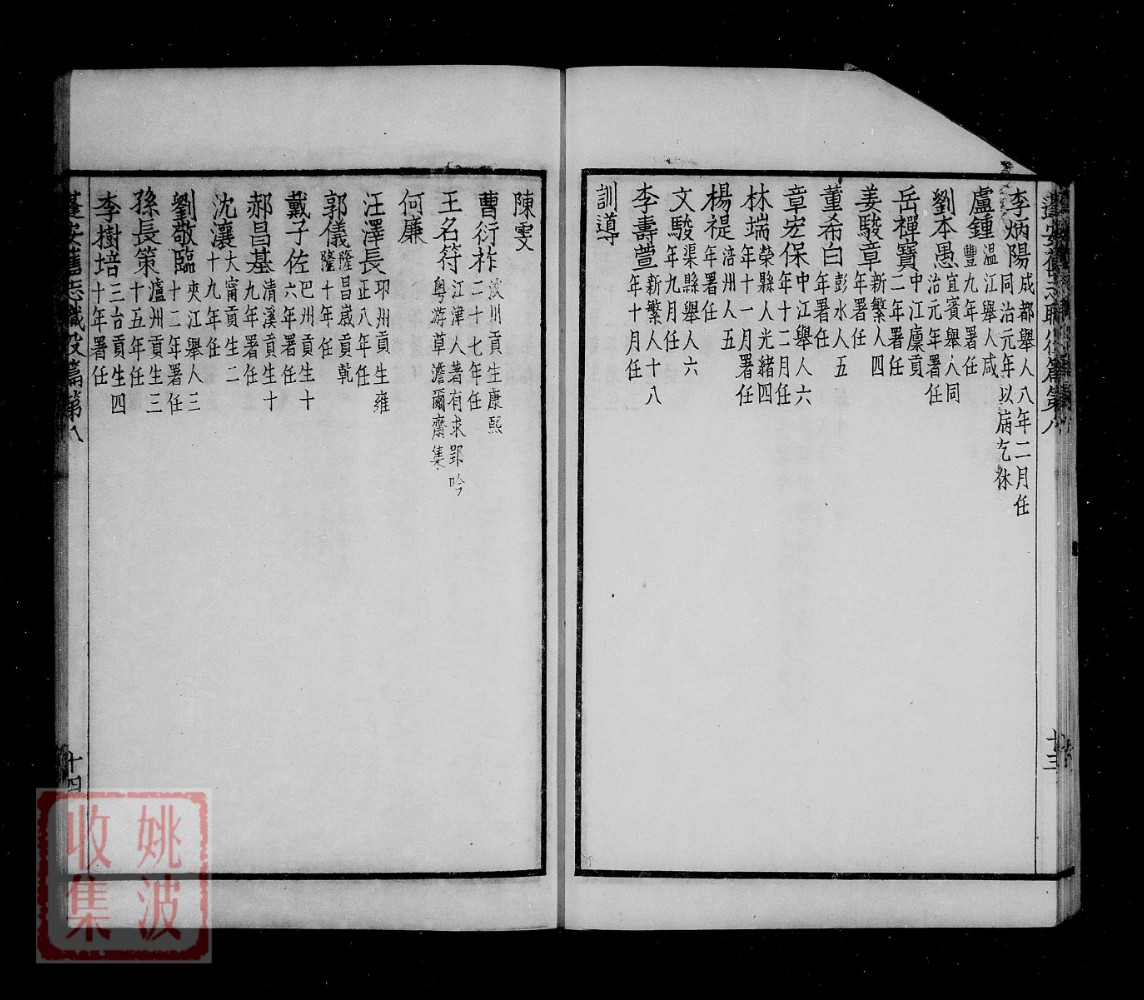 李炳陽 成都舉人八年二月任同治元年以病乞休
盧鍾 溫江舉人咸豐九年署任
劉本愚 宜賓舉人同治元年署任
岳禪寶 中江廩貢二年署任
姜駿章 新繁人四年署任
董希白 彭水人五年署任
章宏保 中江舉人六年十二月任
林端 榮縣人光緒四年十一月署任
楊禔 涪州人五年署任
文駿 渠縣舉人六年九月任
李壽萱 新繁人十八年十月任
訓導
陳雯
曹衍祚 汶川貢生康熙二十七年任
王名符 江津人著有求郢吟粵游草澹爾齋集
何廉
汪澤長 邛州貢生雍正八年任
郭儀 隆昌歲貢乾隆十年任
戴子佐 巴州貢生十六年署任
郝昌基 清溪貢生十九年署任
沈瀼 大甯貢生二十九年任
劉敬臨 夾江舉人三十二年署任
孫長策 瀘州貢生三十五年任
李樹培 三台貢生四十年署任
蓬安舊志職役篇第八 十四
姚波收集